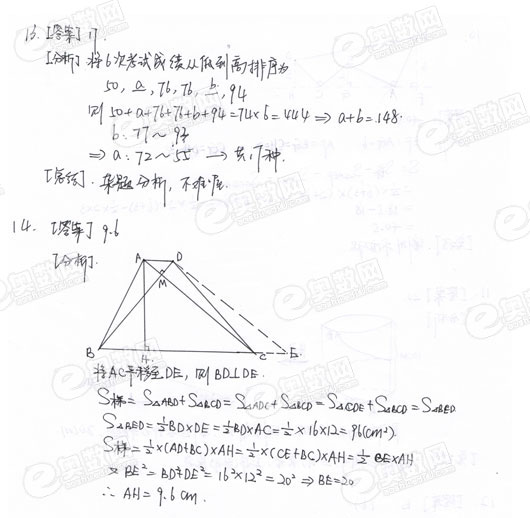 13. [答案] 17.
[分析] 将6次考试成绩从低到高排序为
50, a, 76, 76, b, 94
则 50+a+76+76+b+94=74×6=444 ⇒ a+b=148.
b: 77～93
⇒ a: 72～55 → 共17种.
[总结]. 杂题分析, 不难.
14. [答案] 9.6
[分析].
A D
M
B H C E
将AC平移至DE, 则BD⊥DE.
S梯=S△ABD+S△BCD=S△ADC+S△BCD=S△CDE+S△BCD=S△BED
S△BED=½BD×DE=½BD×AC=½×16×12=96(cm²).
S梯=½×(AD+BC)×AH=½×(CE+BC)×AH=½BE×AH
又BE²=BD²+DE²=16²×12²=20² ⇒ BE=20
∴ AH=9.6 cm.
e奥数网